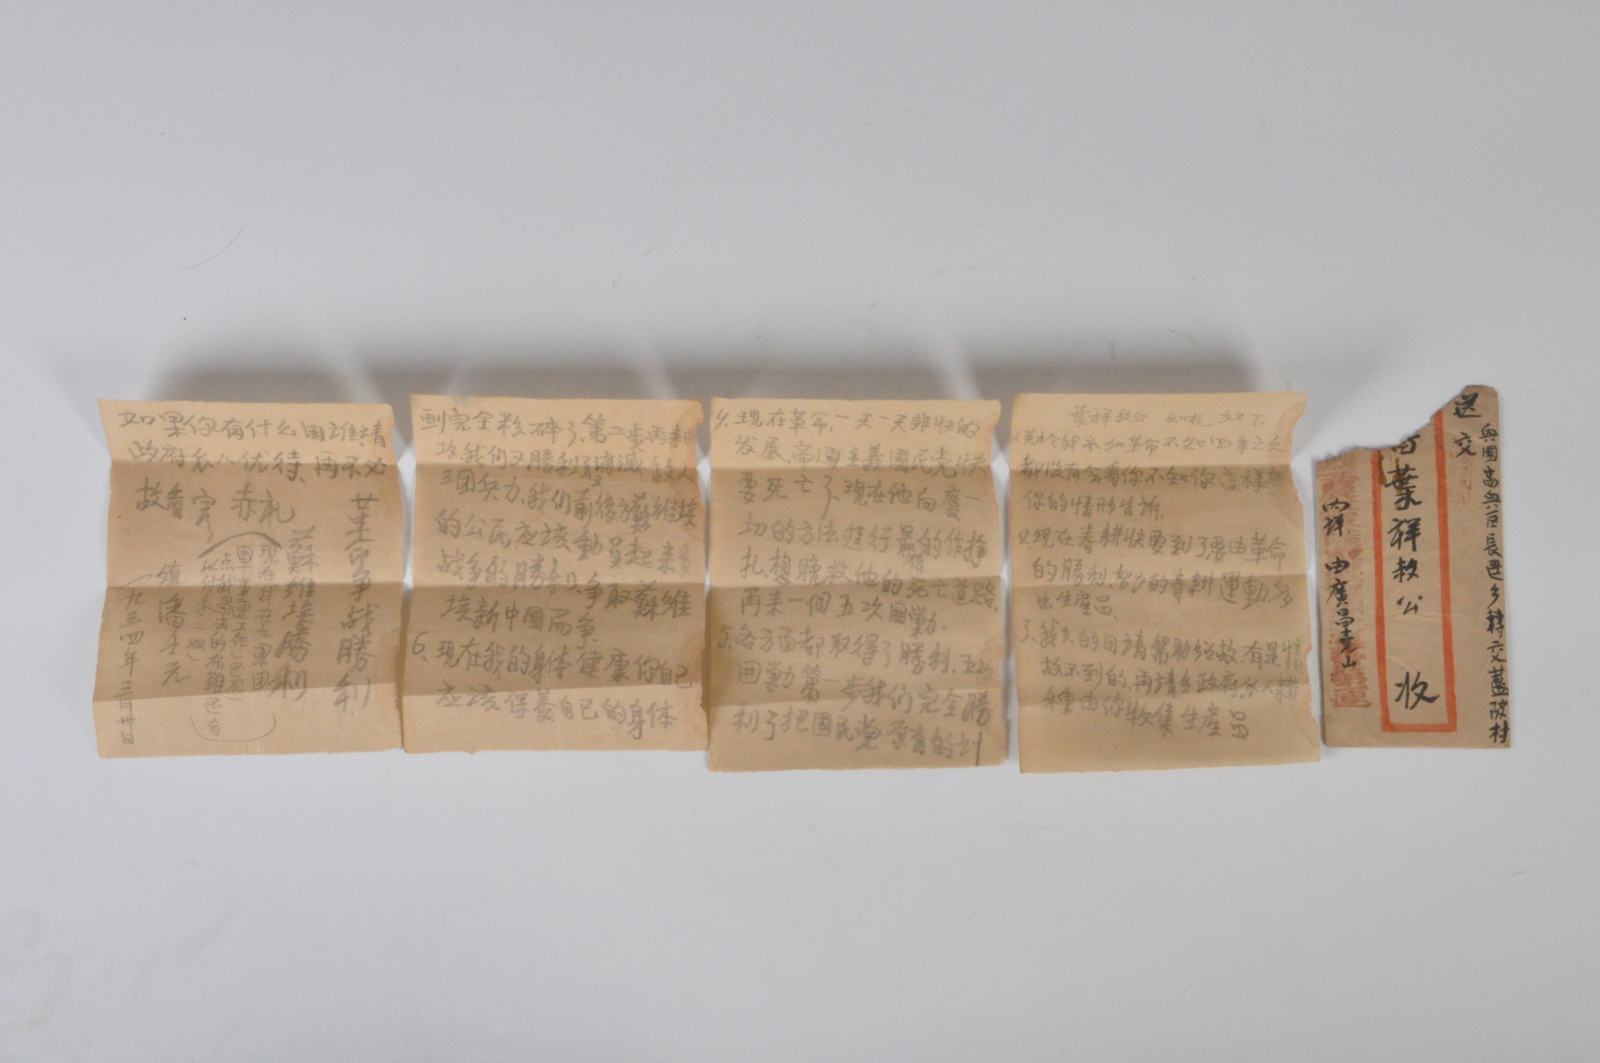 送交
興國高興區長逕乡轉交蓝陂村
葉祥救公 收
內詳 由廣昌
葉祥救公 如札 如下
都没有会看你不知你怎樣
你的情形告訴
2.現在春耕快要到了要由革命
的勝利,努力的春耕運動,多
出生產品
故不到的,再請乡政府分人耕
種由你收集生產品
4.現在革命,一天一天非快的
發展,帝国主義國民党快
要死亡了,現在他向廣一
切的方法進行最后的作掙
扎,想晚救他的死亡道路.
再来一個五次囲勦.
5.各方面都取得了勝利,五次
囲勦第一步我们完全勝
利了把國民党原有的計
劃完全粉碎了.第二步再来進
攻,我们又勝利了殘滅敌人
三团兵力.我们前後方蘇維埃
的公民应该動員起来多
战争的勝利,争取蘇維
埃新中國而争.
6、現在我的身体健康你自己
应该保養自己的身体
如果你有什么困难請
政府派人优待.再不必
故看 完 赤札
革命争战勝利
蘇維埃勝利
現在我在九軍团
一九三四年三月卅日